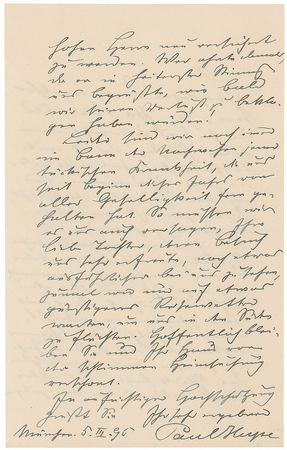 hohen Herrn neu versichert
zu werden. Wer ahnte damals,
da er in heiterster Stimmung
uns begrüßte, wie bald
wir seinen Verlust zu bekla-
gen haben würden.
Leider sind wir noch immer
im Bann der Nachwehen jener
tückischen Krankheit, die uns
seit Beginn dieses Jahres von
aller Geselligkeit fern ge-
halten hat. So mußten wir
es uns auch versagen, Ihre
liebe Tochter, deren Besuch
uns sehr erfreute, noch etwas
ausführlicher bei uns zu sehen,
zumal wir nur auch etwas
günstigeres Reisewetter
warten, um uns in den Süden
zu flüchten. Hoffentlich blei-
ben Sie und Ihr Haus von
der schlimmen Heimsuchung
verschont.
In aufrichtiger Hochschätzung
grüßt Sie Ihr sehr ergebener
München. 5. III. 95 Paul Heyse